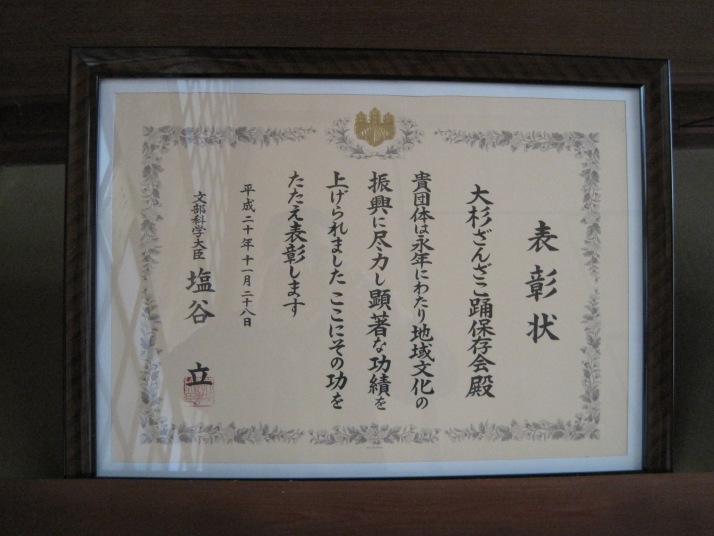 表彰状
大杉ざんざこ踊保存会殿
貴団体は永年にわたり地域文化の
振興に尽力し顕著な功績を
上げられました ここにその功を
たたえ表彰します
平成二十年十一月二十八日
文部科学大臣 塩谷 立